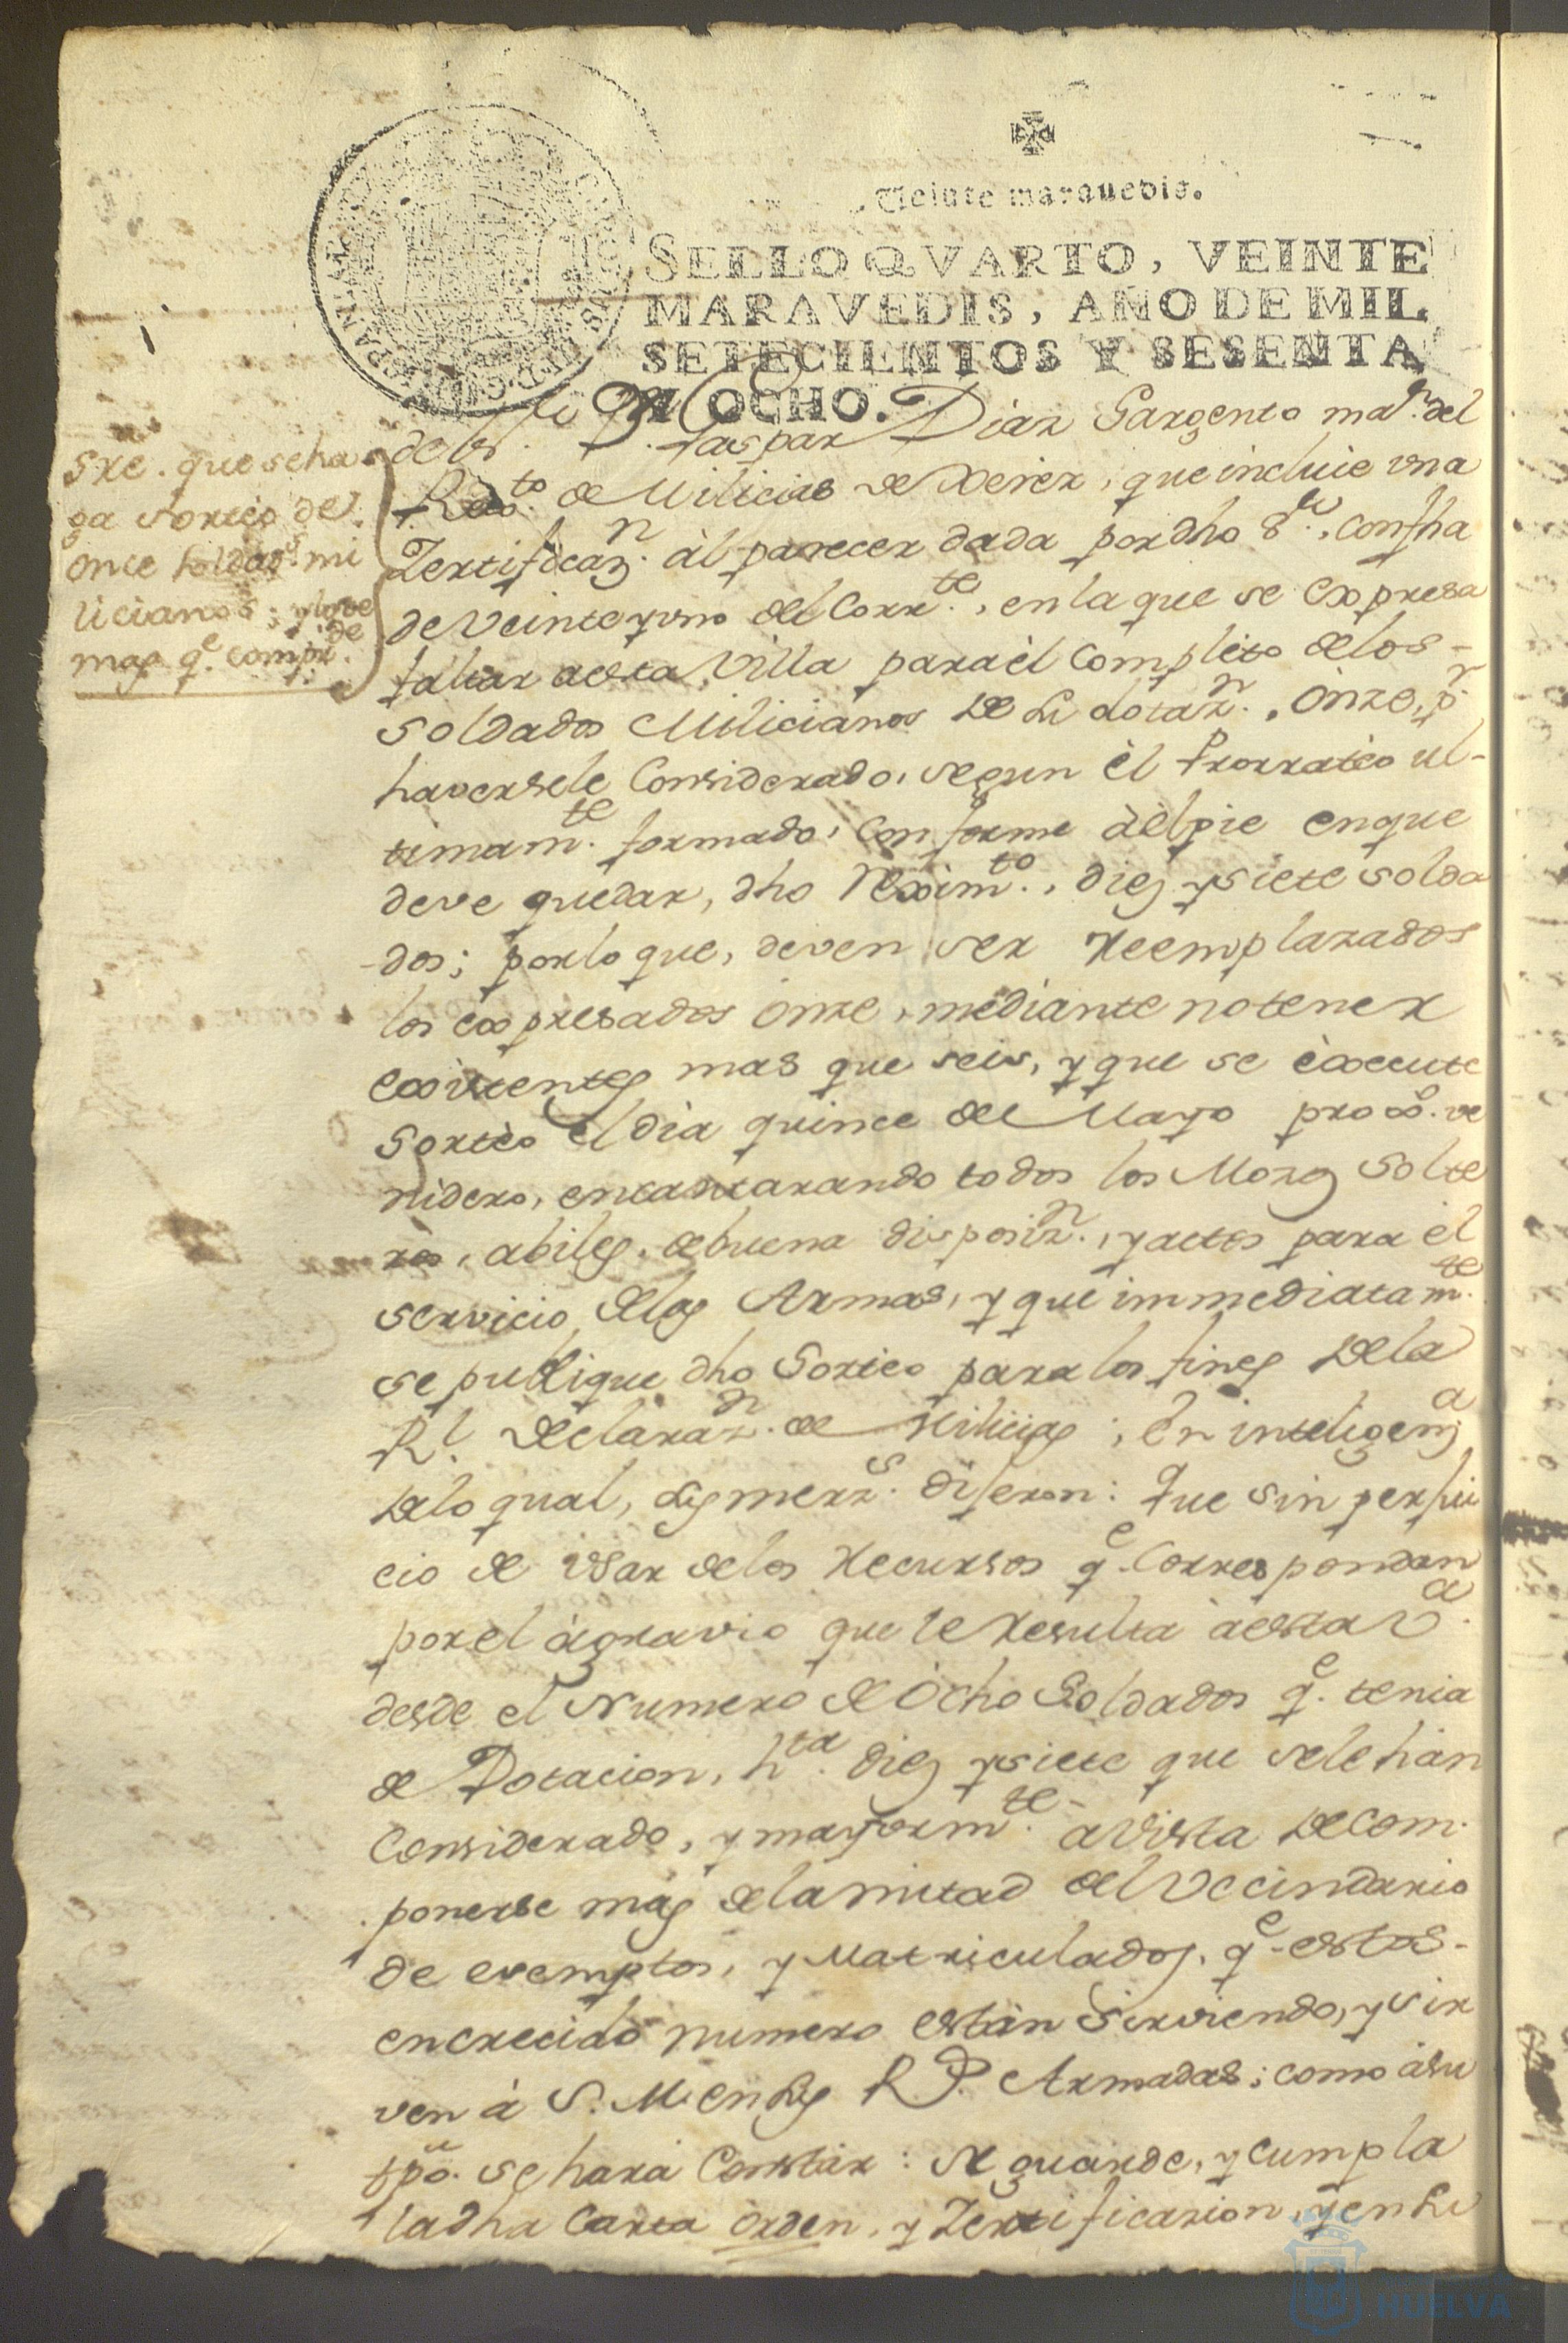 Veinte maravedis.
SELLO QVARTO, VEINTE
MARAVEDIS, AÑO DE MIL
SETECIENTOS Y SESENTA
Y OCHO.
Sre. que se ha
ga sorteo de
once soldad.s mi
licianos; y lo de
mas q.e compr.de
Gaspar Diaz Sargento ma.r del
de Milicias de Xerez, que incluie vna
Zertificaz.n àl parecer dada por dho S.r, con fha
de veinte y uno del Corr.te, en la que se expresa
faltar a esta Villa para èl completo de los
soldados Milicianos de su dotaz.n, Onze, p.r
haversele Considerado, segun èl Prorratèo ul-
timam.te formado, Conforme àl pie en que
deve quedar, dho Rexim.to, diez y siete solda
dos; por lo que, deven ser Reemplazados
los expresados Onze, mediante no tener
existentes mas que seis, y que se èxecute
Sortèo el dia quince de Mayo prox.o ve
nidero, encantarando todos los Mozos Solte
ros, abiles, de buena disposiz.n, y actos para èl
servicio de las Armas, y que immediatam.te
se publique dho Sorteo para los fines de la
R.l Declaraz.n de Milicias; En inteligenz.a
de lo qual, sus merz.s dijeron: Que sin perjui
cio de Usar de los Recursos q.e Correspondan
por el àgravio que le Resulta à esta V.a
desde el Numero de Ocho Soldados q.e tenia
de Dotacion, h.ta diez y siete que se le hàn
Considerado, y mayorm.te a vista de Com-
ponerse mas de la mitad del Vecindario
de exemptos, y Matriculados, q.e estos
en crecido numero estàn Sirviendo, y sir
ven à S. M. en sus R.s Armadas; como à su
tpo. se harà Constar: Se guarde, y cumpla
la dha Carta orden, y Zertificazion, y en su
HUELVA